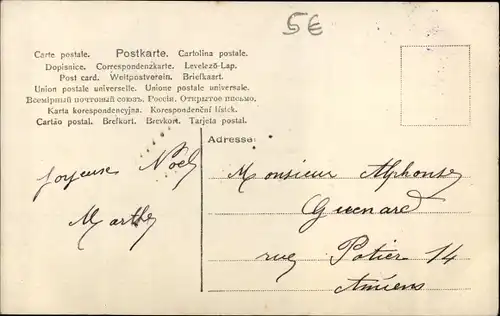 5€
Carte postale. Postkarte. Cartolina postale.
Dopisnice. Correspondenzkarte. Levelező-Lap.
Post card. Weltpostverein. Briefkaart.
Union postale universelle. Unione postale universale.
Всемірный почтовый союзъ. Россія. Открытое письмо.
Karta korespondencyjna. Korespondenční lístek.
Cartão postal. Brefkort. Brevkort. Tarjeta postal.
Adresse:
Joyeuse Noël
Marthe
Monsieur Alphonse
Guenard
rue Potier 14
Amiens